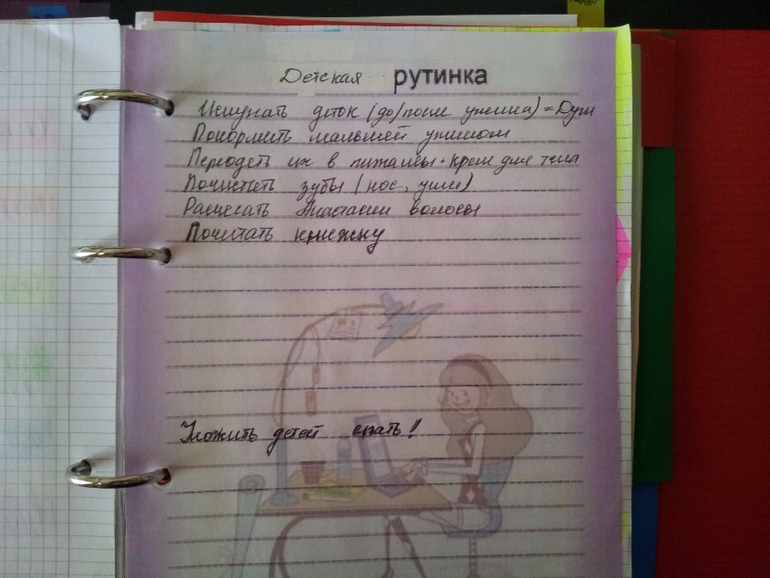 Детская рутинка
Искупать деток (до/после ужина) = Душ
Покормить малышей ужином
Переодеть их в пижамы + крем для тела
Почистить зубы (нос, уши)
Расчесать Анастасии волосы
Почитать книжку
Уложить детей спать!